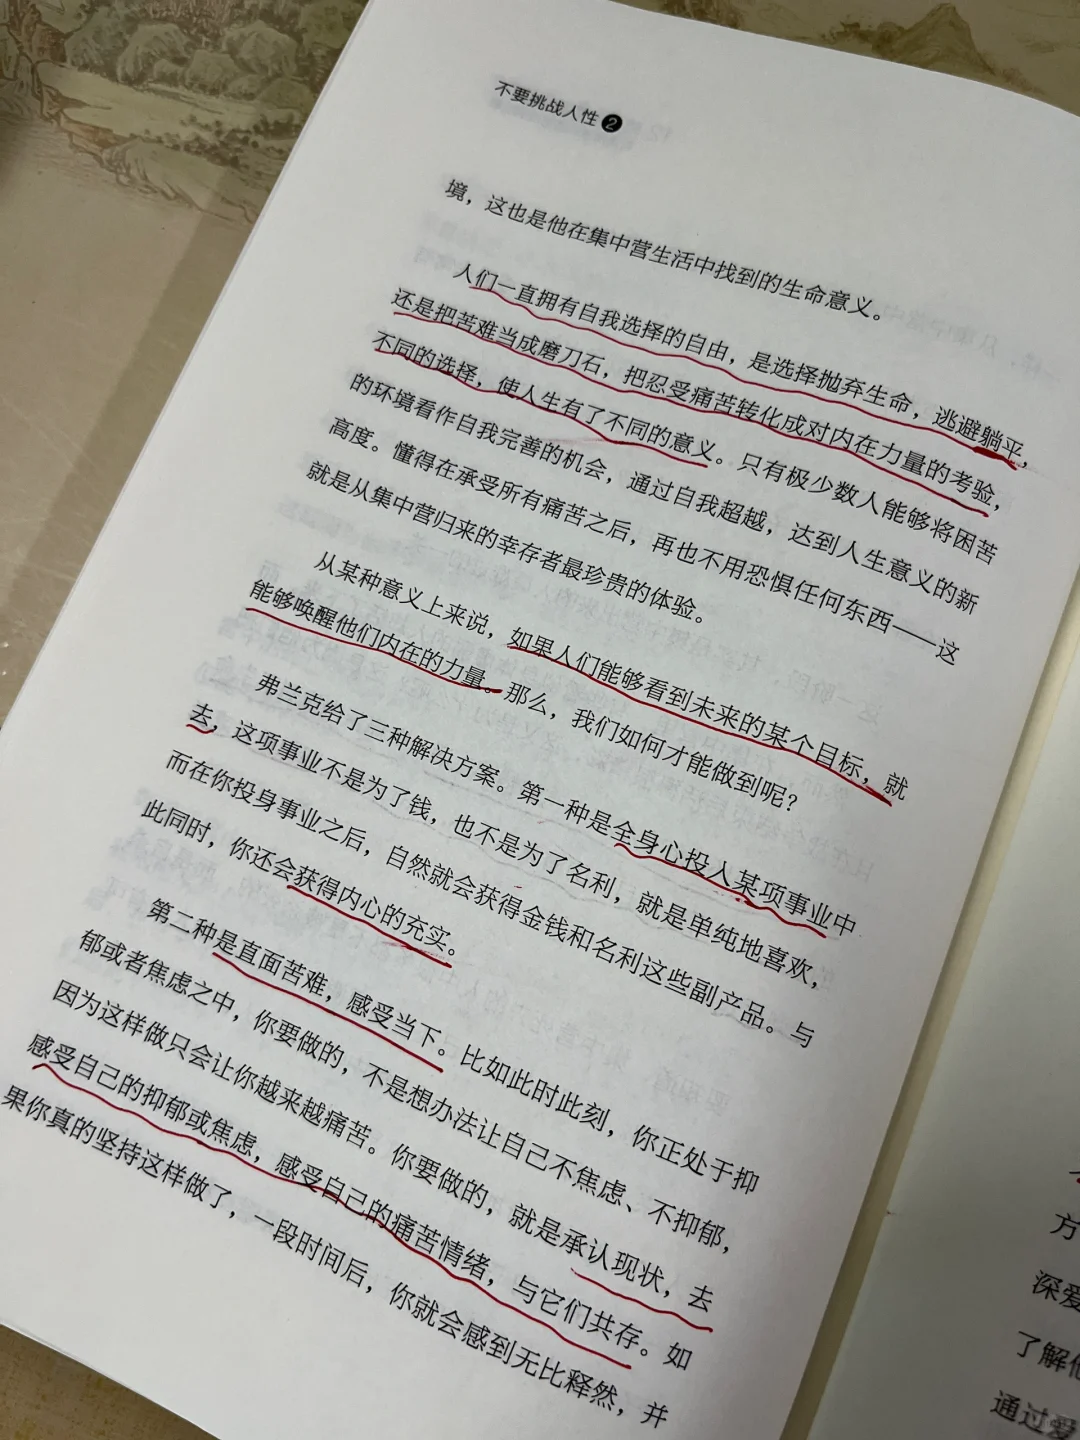 不要挑战人性❷
境，这也是他在集中营生活中找到的生命意义。
人们一直拥有自我选择的自由，是选择抛弃生命，逃避躺平，
还是把苦难当成磨刀石，把忍受痛苦转化成对内在力量的考验，
不同的选择，使人生有了不同的意义。只有极少数人能够将困苦
的环境看作自我完善的机会，通过自我超越，达到人生意义的新
高度。懂得在承受所有痛苦之后，再也不用恐惧任何东西——这
就是从集中营归来的幸存者最珍贵的体验。
从某种意义上来说，如果人们能够看到未来的某个目标，就
能够唤醒他们内在的力量。那么，我们如何才能做到呢？
弗兰克给了三种解决方案。第一种是全身心投入某项事业中
去，这项事业不是为了钱，也不是为了名利，就是单纯地喜欢，
而在你投身事业之后，自然就会获得金钱和名利这些副产品。与
此同时，你还会获得内心的充实。
第二种是直面苦难，感受当下。比如此时此刻，你正处于抑
郁或者焦虑之中，你要做的，不是想办法让自己不焦虑、不抑郁，
因为这样做只会让你越来越痛苦。你要做的，就是承认现状，去
感受自己的抑郁或焦虑，感受自己的痛苦情绪，与它们共存。如
果你真的坚持这样做了，一段时间后，你就会感到无比释然，并
方
深爱
了解他
通过爱